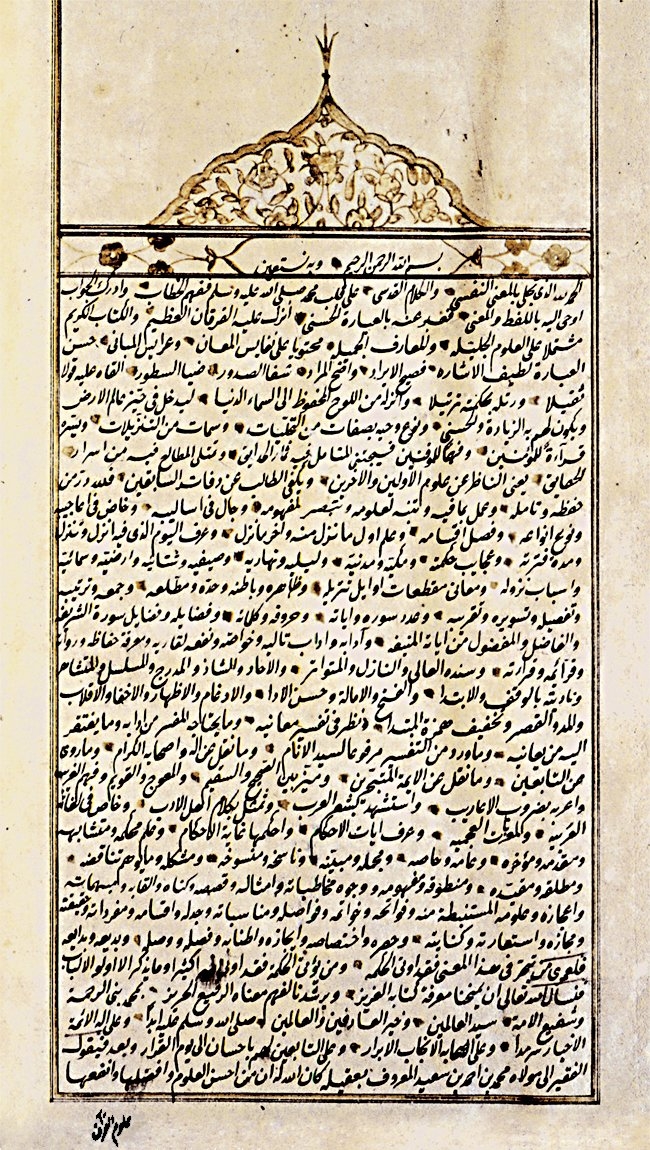 بسم الله الرحمن الرحيم وبه نستعين
الحمد لله الذي تجلى بالمعنى النفسي والكلام القدسي على قلب محمد صلى الله عليه وسلم ففهم الخطاب وادرك الجواب
اوحى اليه باللفظ والمعنى فعبر عنه بالعبارة الحسنى انزل عليه الفرقان العظيم والكتاب الكريم
مشتملا على العلوم الجليلة وللمعارف الجميلة محتويا على نفايس المعان وعرايس المباني حسن
العبارة لطيف الاشارة فصيح الايراد واضح المراد شفا الصدور ضيا السطور القاه عليه قولا
ثقيلا ورتله بحكمته ترتيلا وانزله من اللوح المحفوظ الى السماء الدنيا ليدخل في حيز عالم الارض
ويكون لهم به الزيادة والحسنى ونوع وحيه بصفات من التجليات وسمات من التنزيلات
قراءة للمؤمنين وفهما للموقنين
الحقائق يعي الناظر عن علوم الاولين والاخرين ويكفي الطالب عن دفات السابقين فلله در من
حفظه وتامله وعمل بما فيه واتقنه لعلومه وتبصر لمفهومه وجال في اساليبه وخاض في اعاجيبه
ونوع انواعه وفصل اقسامه وعلم اول ما نزل منه واخر ما نزل وعرف اليوم الذي فيه انزل وتنزل
ومدة فترته وعجاب حكمته ومكيه ومدنيه وليليه ونهاريه وصيفيه وشتائيه وارضيه وسمائيه
واسباب نزوله ومعاني مقطعات اوايل تنزيله وظاهره وباطنه وحده ومطلعه وجمعه وترتيبه
وتفصيل وتسويره وعدد سوره واياته وحروفه وكلماته وفضايله وفضايل سورة الشريفة
والفاضل والمفضول من اياته المنيفه وآدابه واداب تاليه وخواصه ونفعه لقاريه ومعرفة حفاظه ورواته
وقرائه وقراءته وسنده العالي والنازل والمتواتر والاحاد والشاذ والمدرج والمسلسل والمشتهر
وتاديته بالوقف والابتدا والفتح والامالة وحسن الادا والادغام والاظهار والاخفا والاقلاب
والمد والقصر وتخفيف همزة المبتدا ونظر في تفسير معانيه وما يحتاجه المفسر من ادابه وما يفتقر
اليه من معانيه وما ورد من التفسير مرفوعا لسيد الانام وما نقل عن اله واصحابه الكرام وما روي
عن التابعين وما نقل عن الايمة المتبحرين وميز بين الصحيح والسقيم والمعوج والقويم وفهم الغريب
واعربه بضروب الاعاريب واستشهد بشعر العرب وتمثل بكلام اهل الادب وخاض في اللغات
العربية والمعربات العجمية وعرف ايات الاحكام واحكمها غاية الاحكام وعلم محكمه ومتشابهه
ومقدمه ومؤخره وعامه وخاصه ومجمله ومبينه وناسخه ومنسوخه ومشكله وما يوهم تناقضه
ومطلقه ومقيده ومنطوقه ومفهومه ووجوه مخاطباته وامثاله وقصصه وكناه والقابه ومبهماته
واعجازه وعلومه المستنبطة منه وفواتحه وخواتمه وفواصله ومناسباته وجدله واقسامه ومفرداته وحقيقته
ومجازه واستعارته وكنايته وحصره واختصاصه وايجازه واطنابه وفصله ووصله وبديعه وبدايعه
فلعمري من تبحر في هذا المعنى فقد اوتي الحكمة ومن يؤتى الحكمة فقد اوتي خيرا كثيرا وما يذكر الا اولوا الالباب
فنسال الله تعالى ان يمنحنا معرفة كتابه العزيز ويرشدنا لفهم معناه الرفيع الحريز بمحمد نبي الرحمة
وشفيع الامة سيد العالمين وخير العارفين والعالمين صلى الله وسلم عليه ابدا وعلى اله الائمة
الاخيار سرمدا وعلى الصحابة الانجاب الابرار وعلى التابعين لهم باحسان الى يوم القرار وبعد فيقول
الفقير الى مولاه محمد بن احمد بن سعيد المعروف بعقيله كان الله له ان من احسن العلوم وافضلها وانفعها
علوم القران